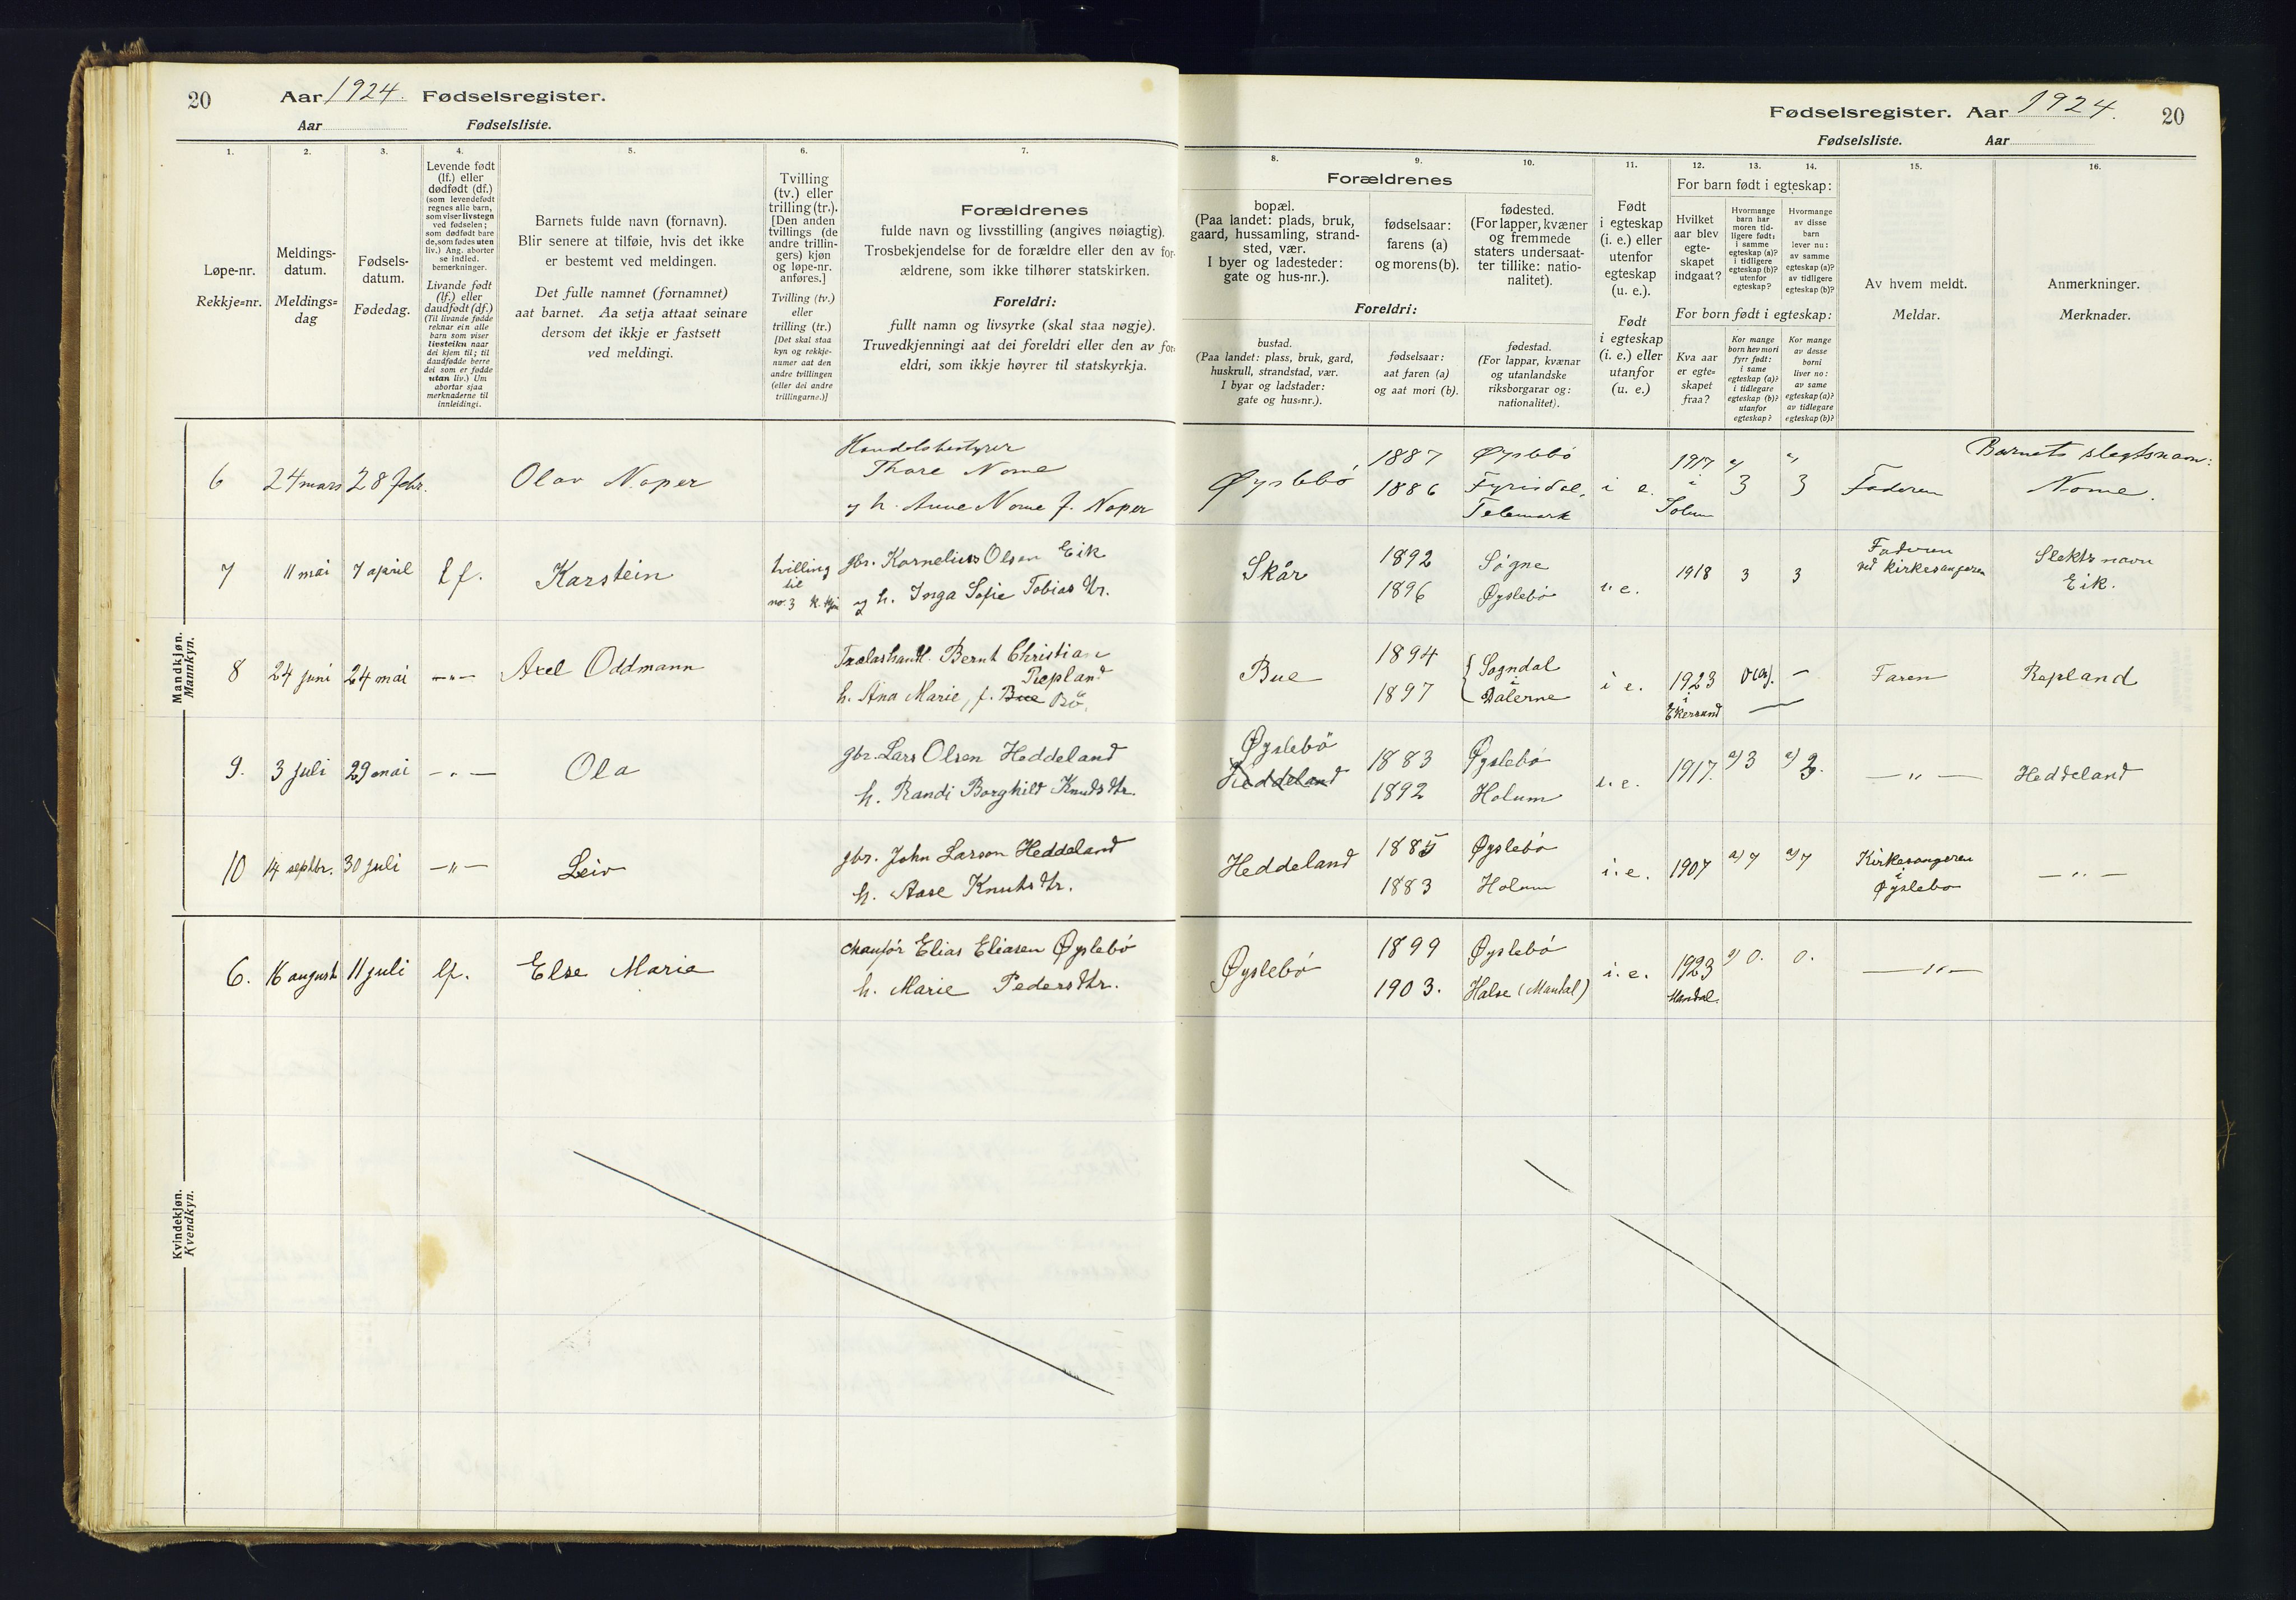 20 Aar 1924. Fødselsregister.
Aar Fødselsliste.
1. 2. 3. 4. 5. 6. 7.
Løpe-nr.
Rekkje=nr.
Meldings-
datum.
Meldings=
dag
Fødsels-
datum.
Fødedag.
Levende født
(lf.) eller
dødfødt (df.)
(som levendefødt
regnes alle barn,
som viser livstegn
ved fødselen;
som dødfødt bare
de, som fødes uten
liv.) Ang. aborter
se indled.
bemerkninger.
Livande født
(lf.) eller
daudfødt (df.)
(Til livande fødde
reknar ein alle
barn som viser
livsteikn naar
dei kjem til; til
daudfødde berre
dei som er fødde
utan liv.) Um
abortar sjaa
merknaderne til
innleidingi.
Barnets fulde navn (fornavn).
Blir senere at tilføie, hvis det ikke
er bestemt ved meldingen.
Det fulle namnet (fornamnet)
aat barnet. Aa setja attaat seinare
dersom det ikkje er fastsett
ved meldingi.
Tvilling
(tv.) eller
trilling (tr.).
[Den anden
tvillings (de
andre trillin-
gers) kjøn
og løpe-nr.
anføres.]
Tvilling (tv.)
eller
trilling (tr.)
[Det skal staa
kyn og rekkje-
numer aat den
andre tvillingen
(eller dei andre
trillingarne.)]
Forældrenes
fulde navn og livsstilling (angives nøiagtig).
Trosbekjendelse for de forældre eller den av for-
ældrene, som ikke tilhører statskirken.
Foreldri:
fullt namn og livsyrke (skal staa nøgje).
Truvedkjenningi aat dei foreldri eller den av for-
eldri, som ikkje høyrer til statskyrkja.
Mandkjøn.
Mannkyn.
6 24 mars 28 febr. Olav Noper
Handelsbestyrer
Thore Nome
og h. Anne Nome f. Noper
7 11 mai 7 april lf. Karstein
tvilling
til
no. 3 k. kjøn
gbr. Kornelius Olsen Eik
og h. Inga Sofie Tobias dtr.
8 24 juni 24 mai —"— Axel Oddmann
Trælashandl. Bernt Christian
Repland
h. Ana Marie, f. Bue Bö.
9. 3 juli 29 mai —"— Ola
gbr. Lars Olsen Heddeland
h. Randi Borghild Knudsdtr.
10 14 septbr. 30 juli —"— Leiv
gbr. John Larson Heddeland
h. Aase Knutsdtr.
Kvindekjøn.
Kvendkyn.
6. 16 august 11 juli lf. Else Marie
chauför Elias Eliasen Øyslebö
h. Marie Pedersdtr.
Fødselsregister. Aar 1924. 20
Fødselsliste. Aar
8. 9. 10. 11. 12. 13. 14. 15. 16.
Forældrenes
bopæl.
(Paa landet: plads, bruk,
gaard, hussamling, strand-
sted, vær.
I byer og ladesteder:
gate og hus-nr.).
fødselsaar:
farens (a)
og morens (b).
fødested.
(For lapper, kvæner
og fremmede
staters undersaat-
ter tillike: natio-
nalitet).
Foreldri:
bustad.
(Paa landet: plass, bruk, gard,
huskrull, strandstad, vær.
I byar og ladstader:
gate og hus=nr.).
fødselsaar:
aat faren (a)
og aat mori (b).
fødestad.
(For lappar, kvænar
og utanlandske
riksborgarar og:
nationalitet).
Født
i egteskap
(i. e.) eller
utenfor
egteskap
(u. e.).
Født
i egteskap
(i. e.) eller
utanfor
(u. e.)
For barn født i egteskap:
Hvilket
aar blev
egte-
skapet
indgaat?
Hvormange
barn har
moren tid-
ligere født:
i samme
egteskap (a)?
i tidligere
egteskap (b)?
utenfor
egteskap?
Hvormange
av disse
barn
lever nu:
av samme
egteskap (a)?
av tidligere
egteskap (b)?
For born født i egteskap:
Kva aar
er egte=
skapet
fraa?
Kor mange
born hev mori
fyrr født:
i same
egteskap (a)?
i tidlegare
egteskap (b)?
utanfor
egteskap?
Kor mange
av desse
borni
liver no:
av same
egteskap (a)?
av tidlegare
egteskap (b)?
Av hvem meldt.
Meldar.
Anmerkninger.
Merknader.
Øyslebö
1887
1886
Øyslebö
Fyrisdal,
Telemark
i e.
1917
i
Solum
a) 3 a) 3 Faderen
Barnets slegtsnavn:
Nome.
Skår
1892
1896
Søgne
Øyslebö
i. e. 1918 3 3
Faderen
ved kirkesangeren
Slektsnavn
Eik.
Bue
1894
1897
Sogndal
i
Dalerne
i e.
1923
i
Ekersund
0 (a). — Faren Repland
Øyslebö
Heddeland
1883
1892
Øyslebö
Holum
i. e. 1917. a) 3 a) 2. —"— Heddeland
Heddeland
1885
1883
Øyslebö
Holum
i. e. 1907 a) 7 a) 7
Kirkesangeren
i
Øyslebo
—"—
Øyslebö
1899
1903.
Øyslebö
Halse (Mandal)
i. e.
1923
Mandal.
a) 0. 0. —"—